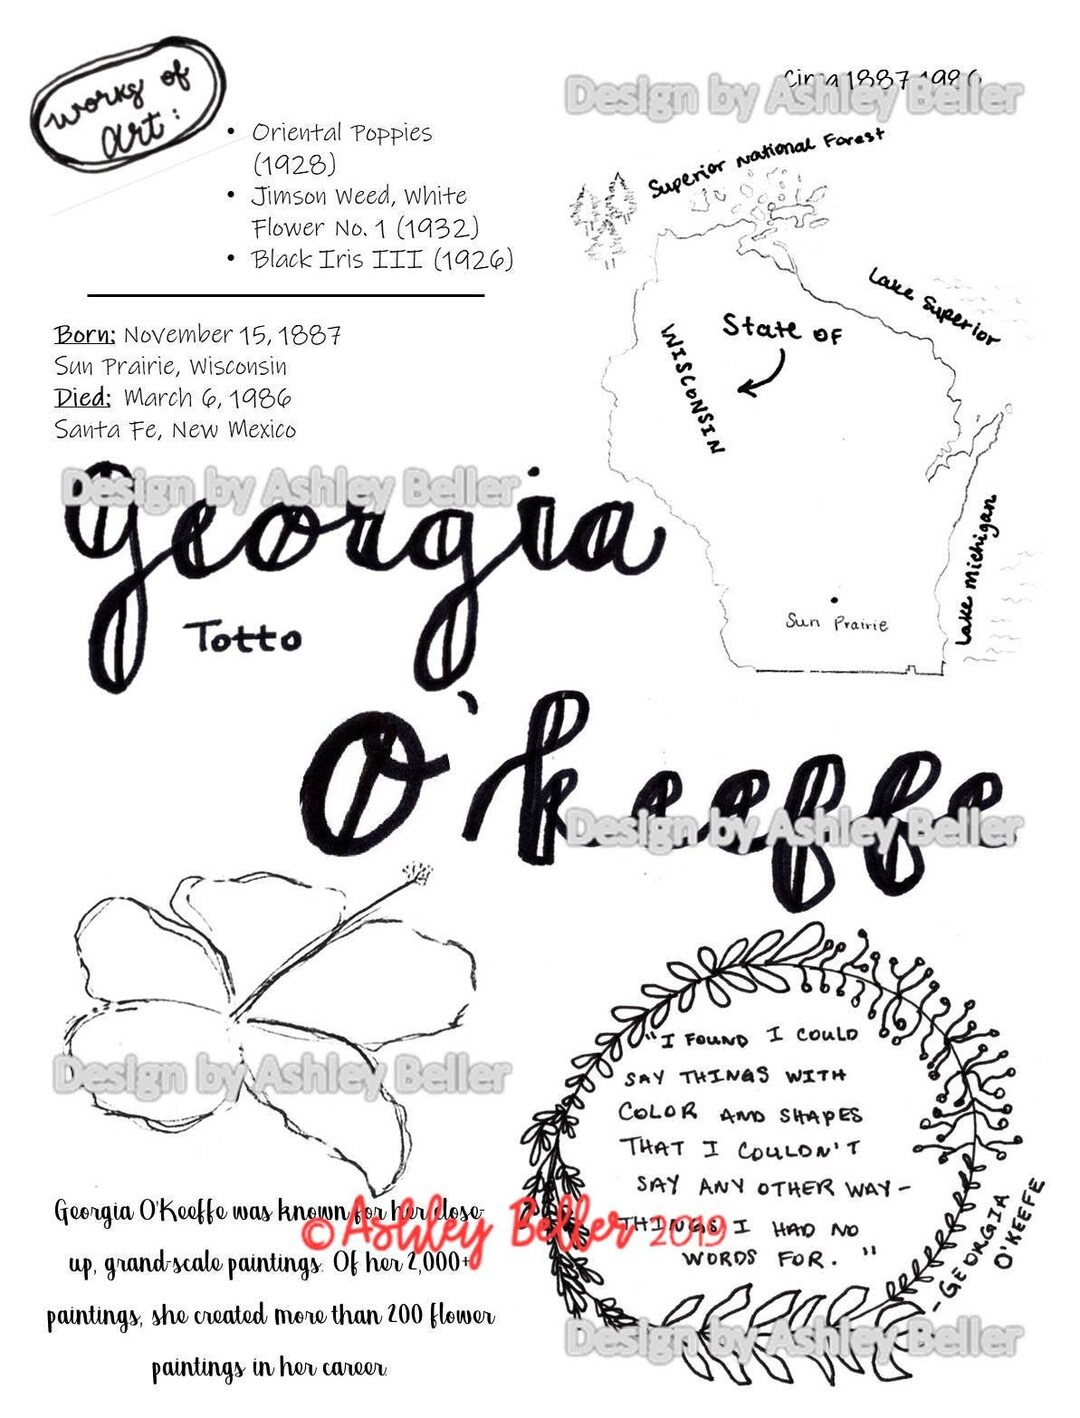 Works of
Art:
Circa 1887-1986
Design by Ashley Beller
• Oriental Poppies
(1928)
• Jimson Weed, White
Flower No. 1 (1932)
• Black Iris III (1926)
Superior National Forest
Lake Superior
State of
WISCONSIN
Lake Michigan
Sun Prairie
Born: November 15, 1887
Sun Prairie, Wisconsin
Died: March 6, 1986
Santa Fe, New Mexico
Design by Ashley Beller
Georgia
Totto
O'keeffe
Design by Ashley Beller
Design by Ashley Beller
Georgia O'Keeffe was known for her close-
up, grand-scale paintings. Of her 2,000+
paintings, she created more than 200 flower
paintings in her career.
© Ashley Beller 2019
"I FOUND I COULD
SAY THINGS WITH
COLOR AND SHAPES
THAT I COULDN'T
SAY ANY OTHER WAY-
THINGS I HAD NO
WORDS FOR."
-GEORGIA
O'KEEFE
Design by Ashley Beller